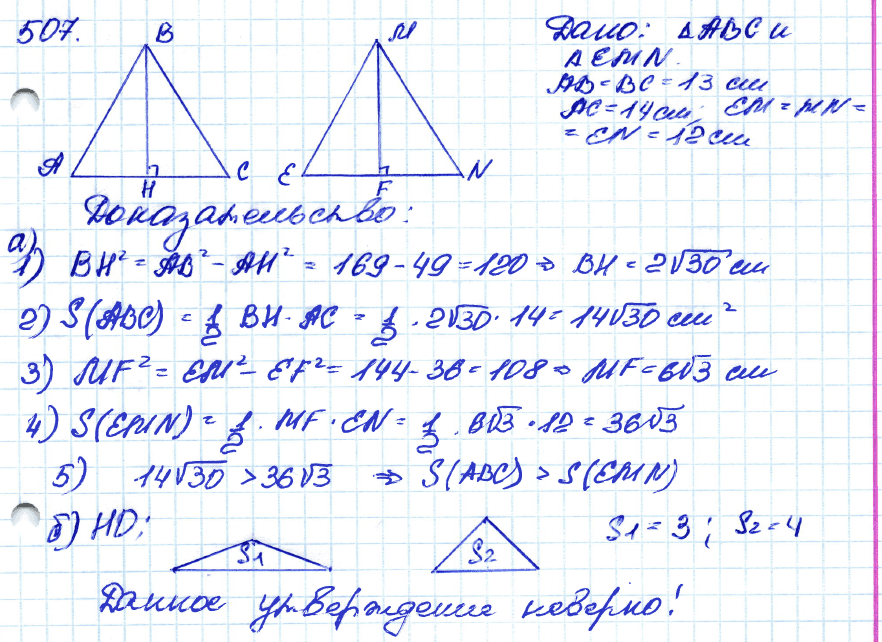 507.
B
M
A
H
C
E
F
N
Дано: △ABC и
△EMN.
AB = BC = 13 см
AC = 14 см; EM = MN =
= EN = 12 см
Доказательство:
а)
1) BH² = AB² - AH² = 169 - 49 = 120 ⇒ BH = 2√30 см
2) S(ABC) = 1/2 BH · AC = 1/2 · 2√30 · 14 = 14√30 см²
3) MF² = EM² - EF² = 144 - 36 = 108 ⇒ MF = 6√3 см
4) S(EMN) = 1/2 · MF · EN = 1/2 · 6√3 · 12 = 36√3
5) 14√30 > 36√3 ⇒ S(ABC) > S(EMN)
б) НО;
S1
S2
S1 = 3 ; S2 = 4
Данное утверждение неверно!